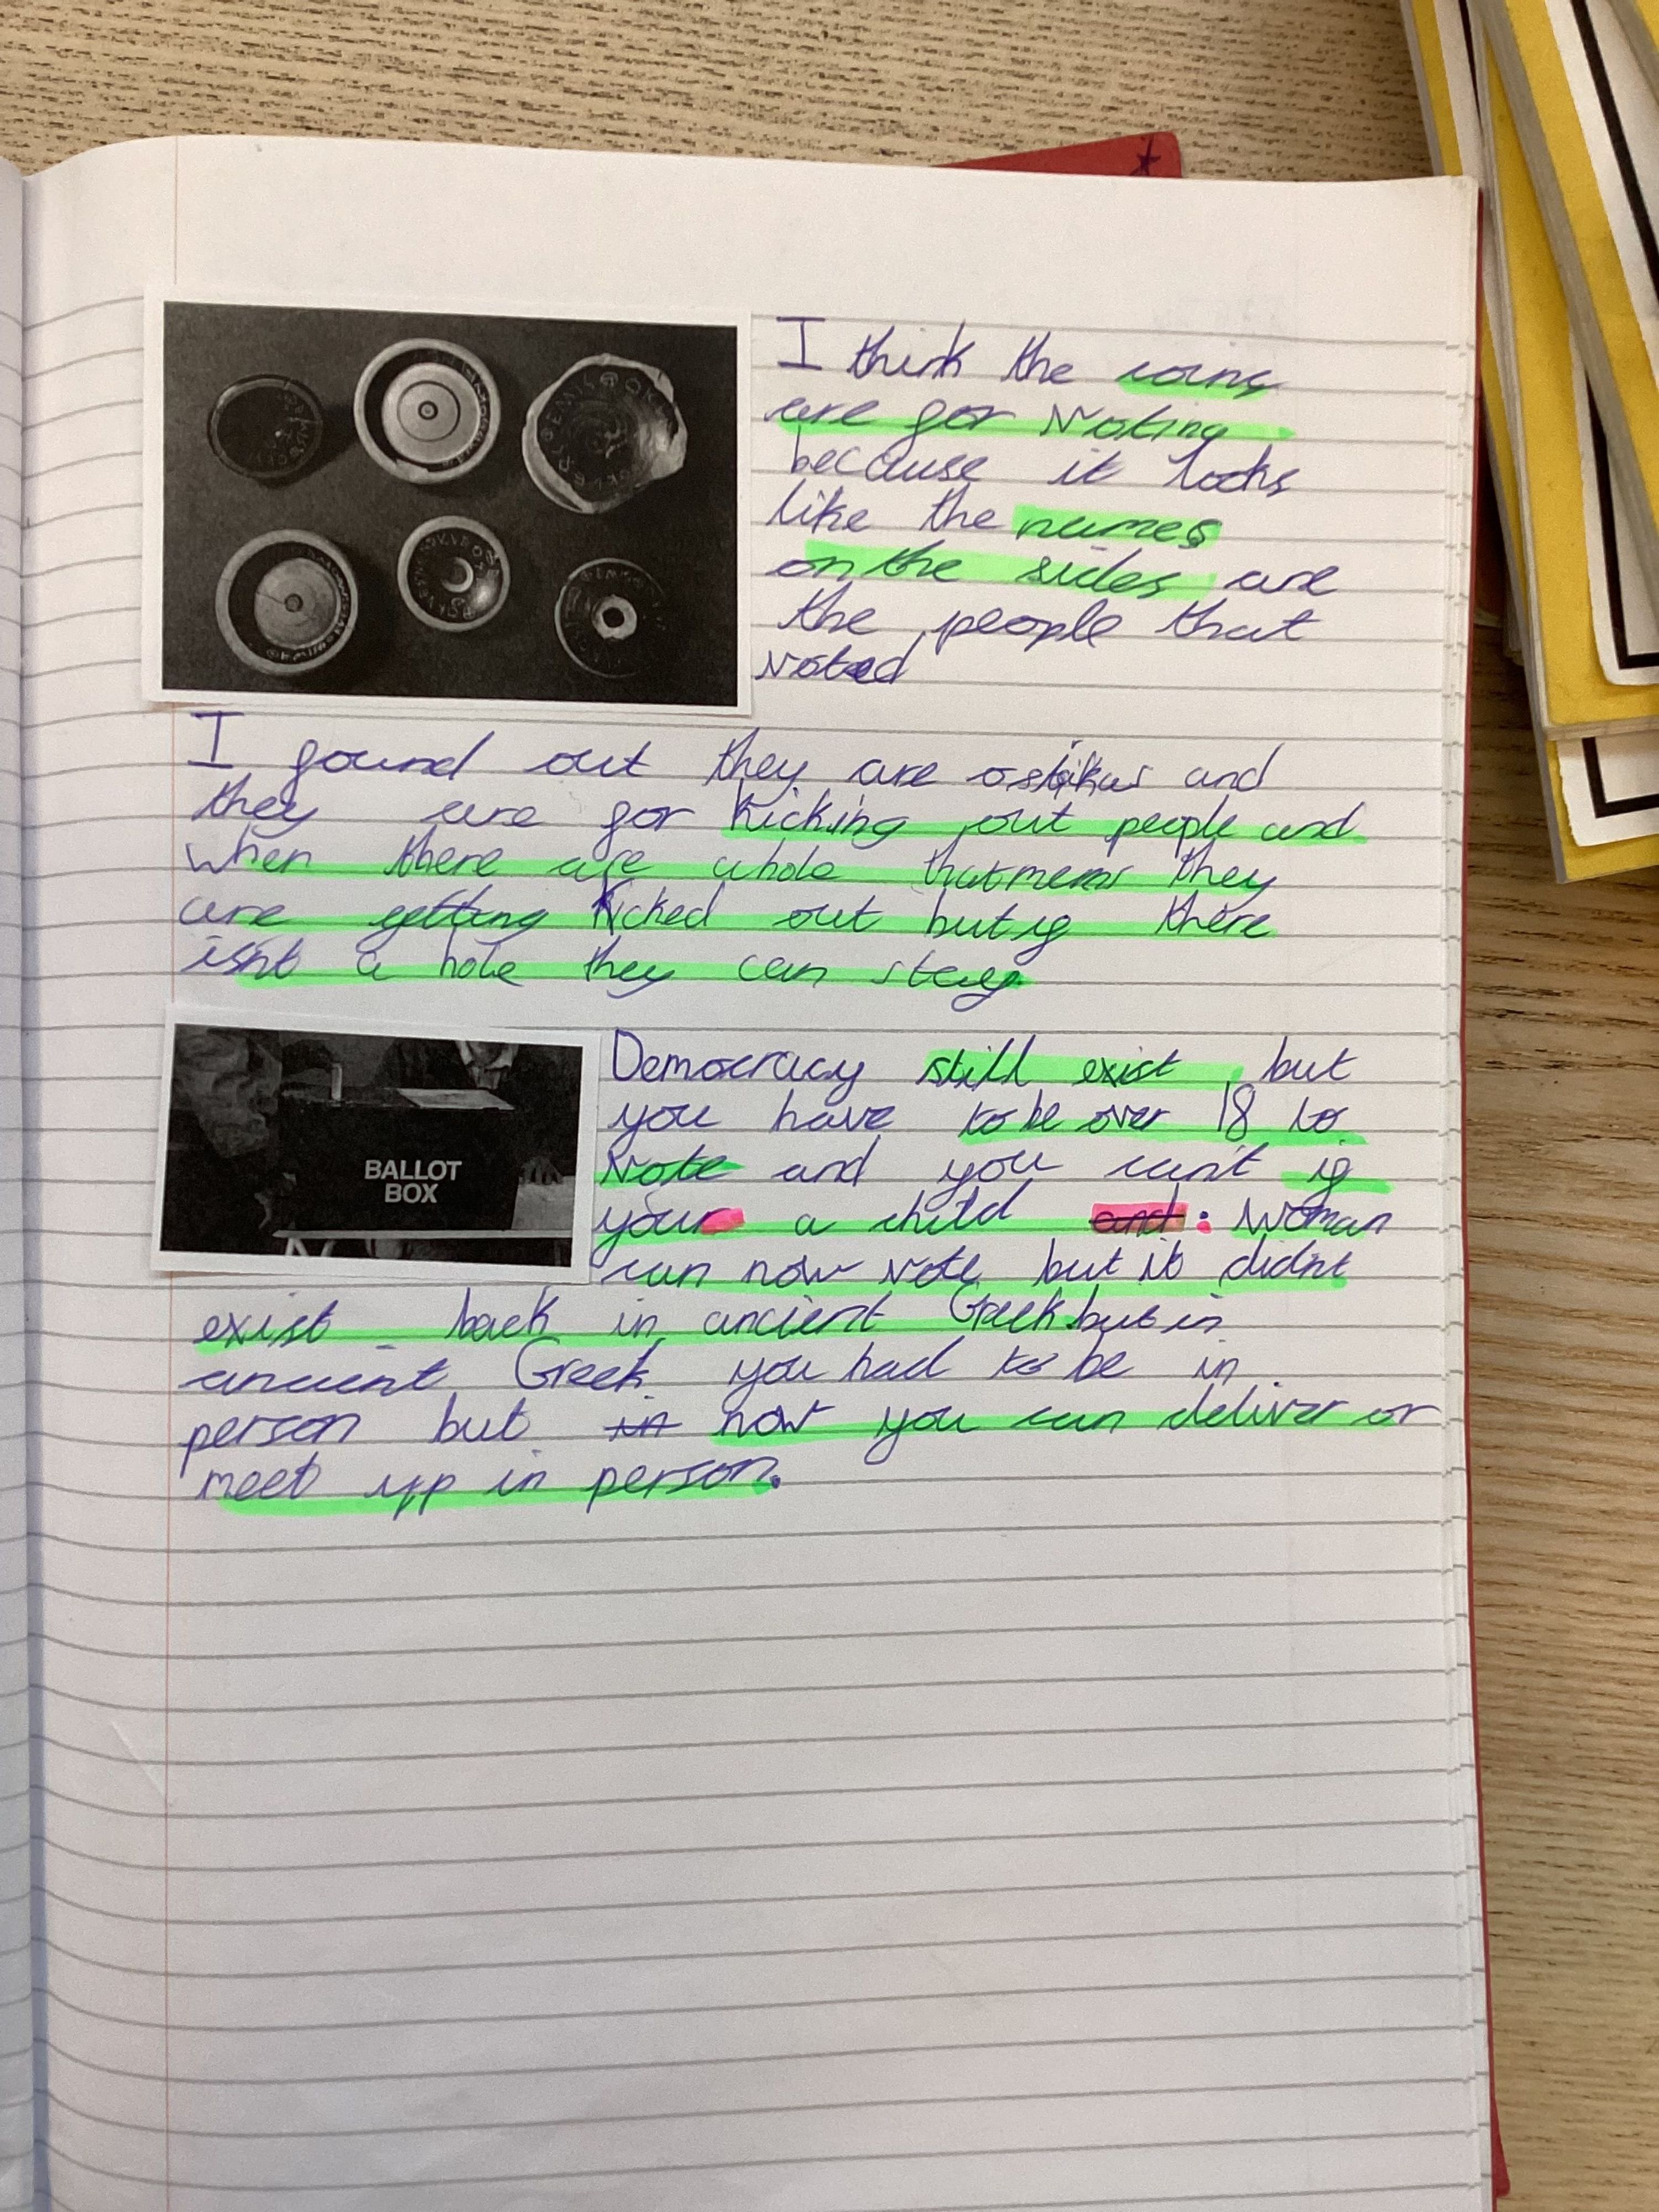 I think the coins
are for voting
because it looks
like the names
on the sides are
the people that
voted
I found out they are and
they are for kicking out people and
when there are ahole that mens they
are getting kicked out but if there
isnt a hole they can stay.
BALLOT
BOX
Democracy still exist, but
you have to be over 18 to
vote and you can't if
your a child and: woman
can now vote but it didn't
exist back in ancient Greek but in
ancient Greek you had to be in
person but in now you can deliver or
meet up in person.